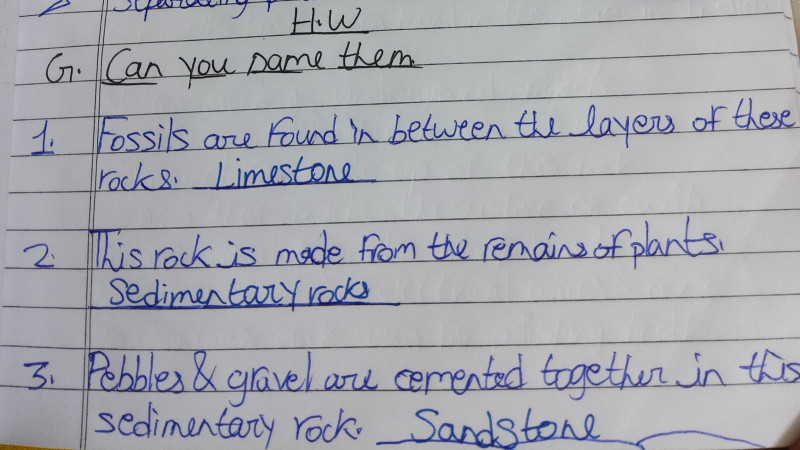 H.W
G. Can you name them
1. Fossils are found in between the layers of these
rocks. Limestone
2. This rock is made from the remains of plants.
Sedimentary rocks
3. Pebbles & gravel are cemented together in this
sedimentary rock. Sandstone